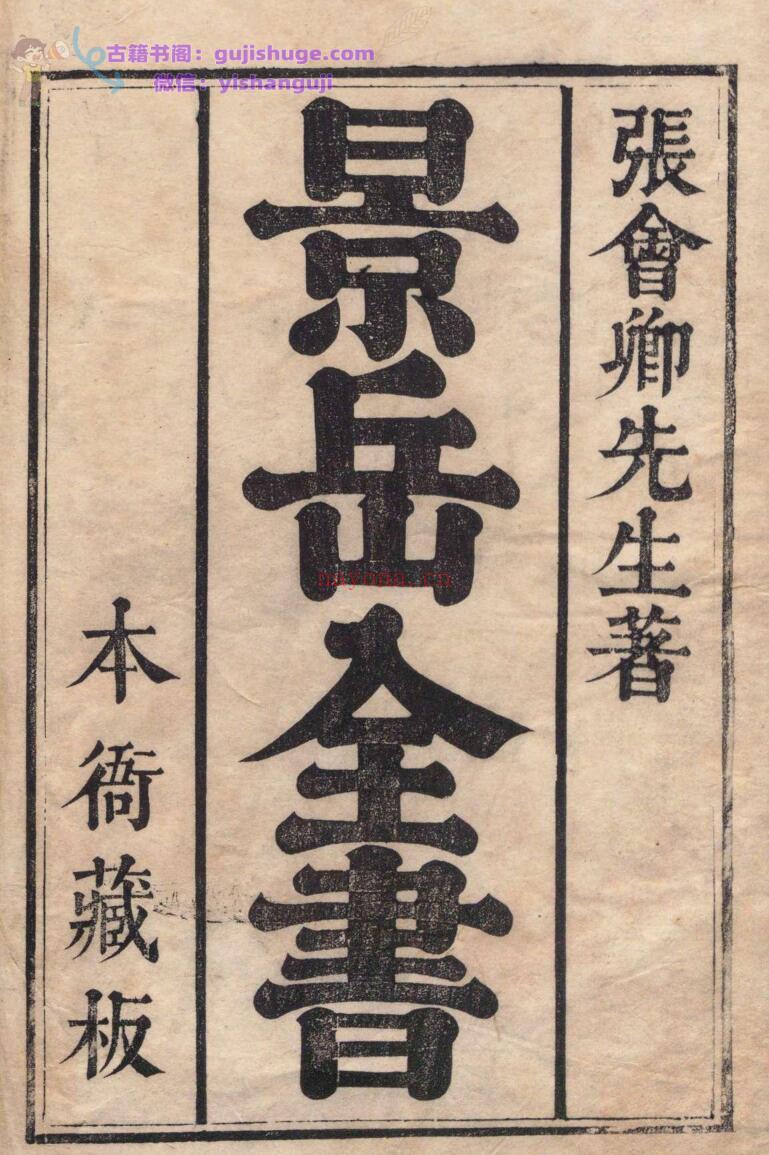 古籍书阁：gujishuge.com
微信：yishanguji
張會卿先生著
景岳全書
本衙藏板
nayona.cn